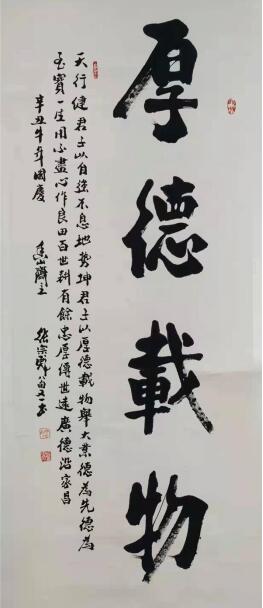 厚德載物
天行健君子以自強不息地势坤君子以厚德載物舉大業德為先德為
至寶一生用不盡心作良田百世耕有餘忠厚傳世遠廣德沿家昌
辛丑牛年國慶